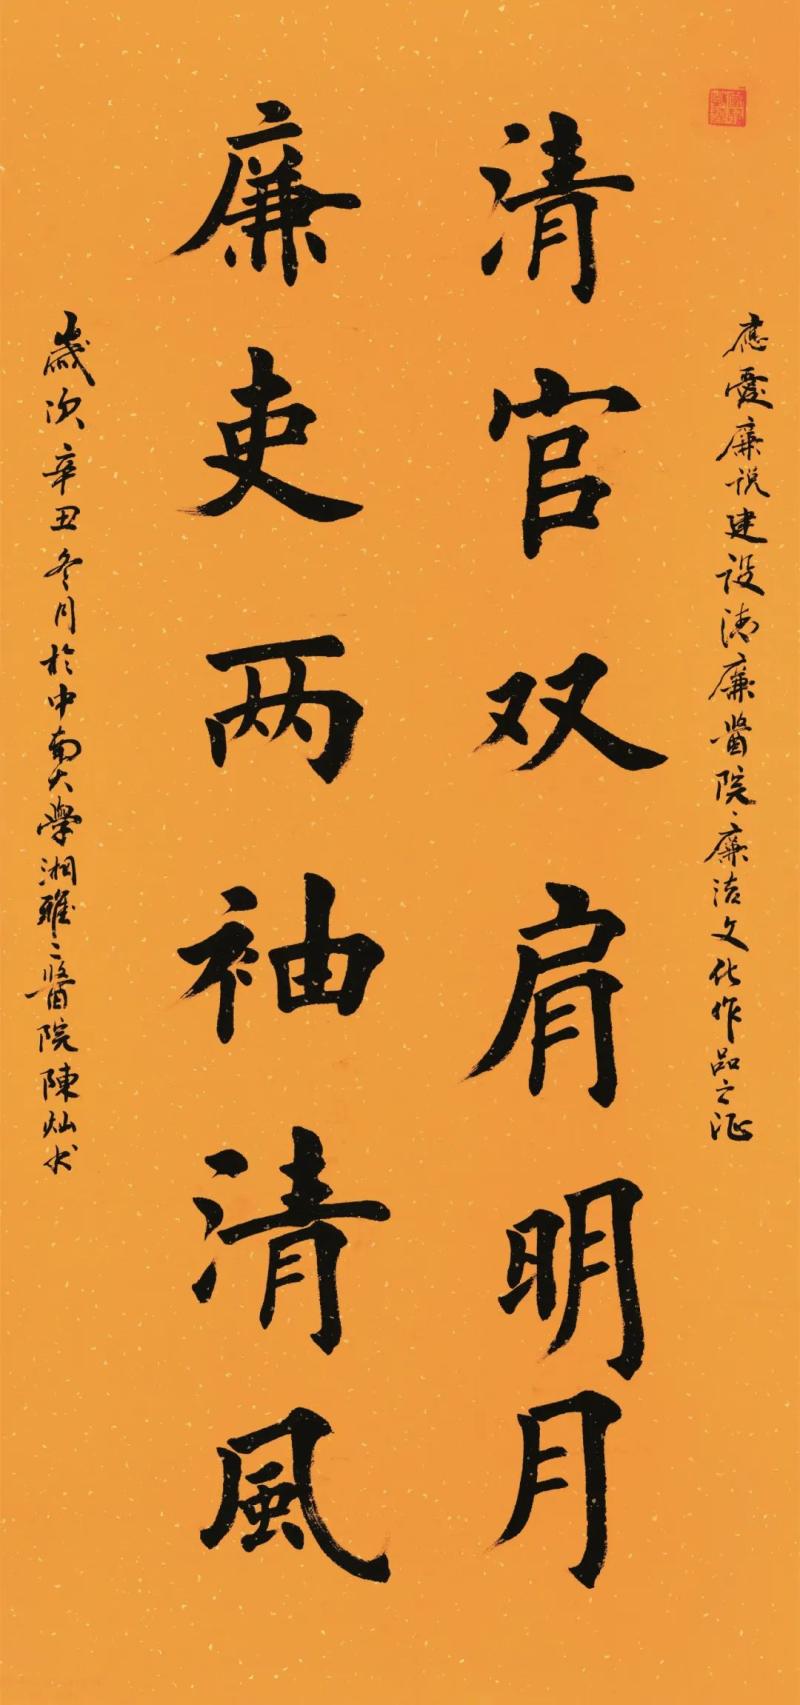 應愛廉说建设清廉醫院、廉洁文化作品之征
清官双肩明月
廉吏两袖清風
歲次辛丑冬月於中南大學湘雅二醫院陳灿书